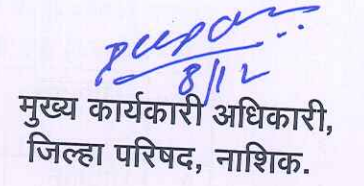 8/12
मुख्य कार्यकारी अधिकारी,
जिल्हा परिषद, नाशिक.